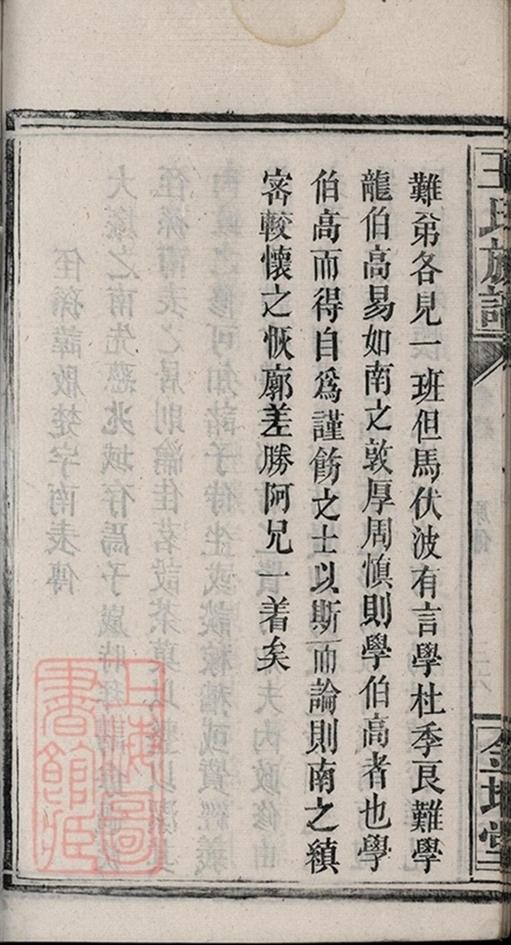 王氏族譜
金坤堂
難弟各見一班但馬伏波有言學杜季良難學
龍伯高易如南之敦厚周慎則學伯高者也學
伯高而得自為謹飭之士以斯而論則南之縝
密較懷之恢廓差勝阿兄一着矣
上海圖
書館藏